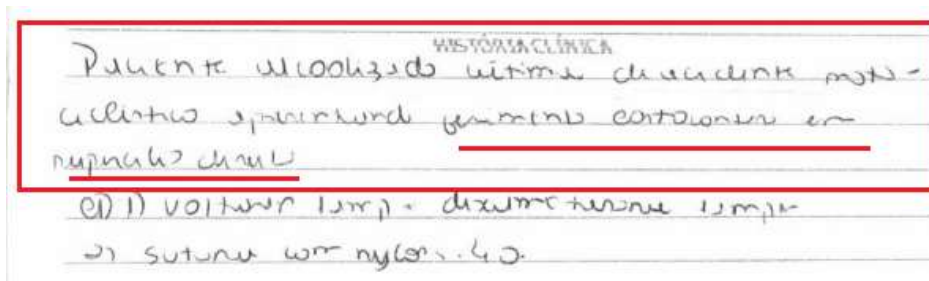 HISTÓRIA CLÍNICA
Paciente alcoolizado vítima de acidente moto-
ciclístico apresentando ferimento cortocontuso em
direito
1) voltaren 1 amp. dexametasona 1 amp.
2) sutura com nylon. 4 0.